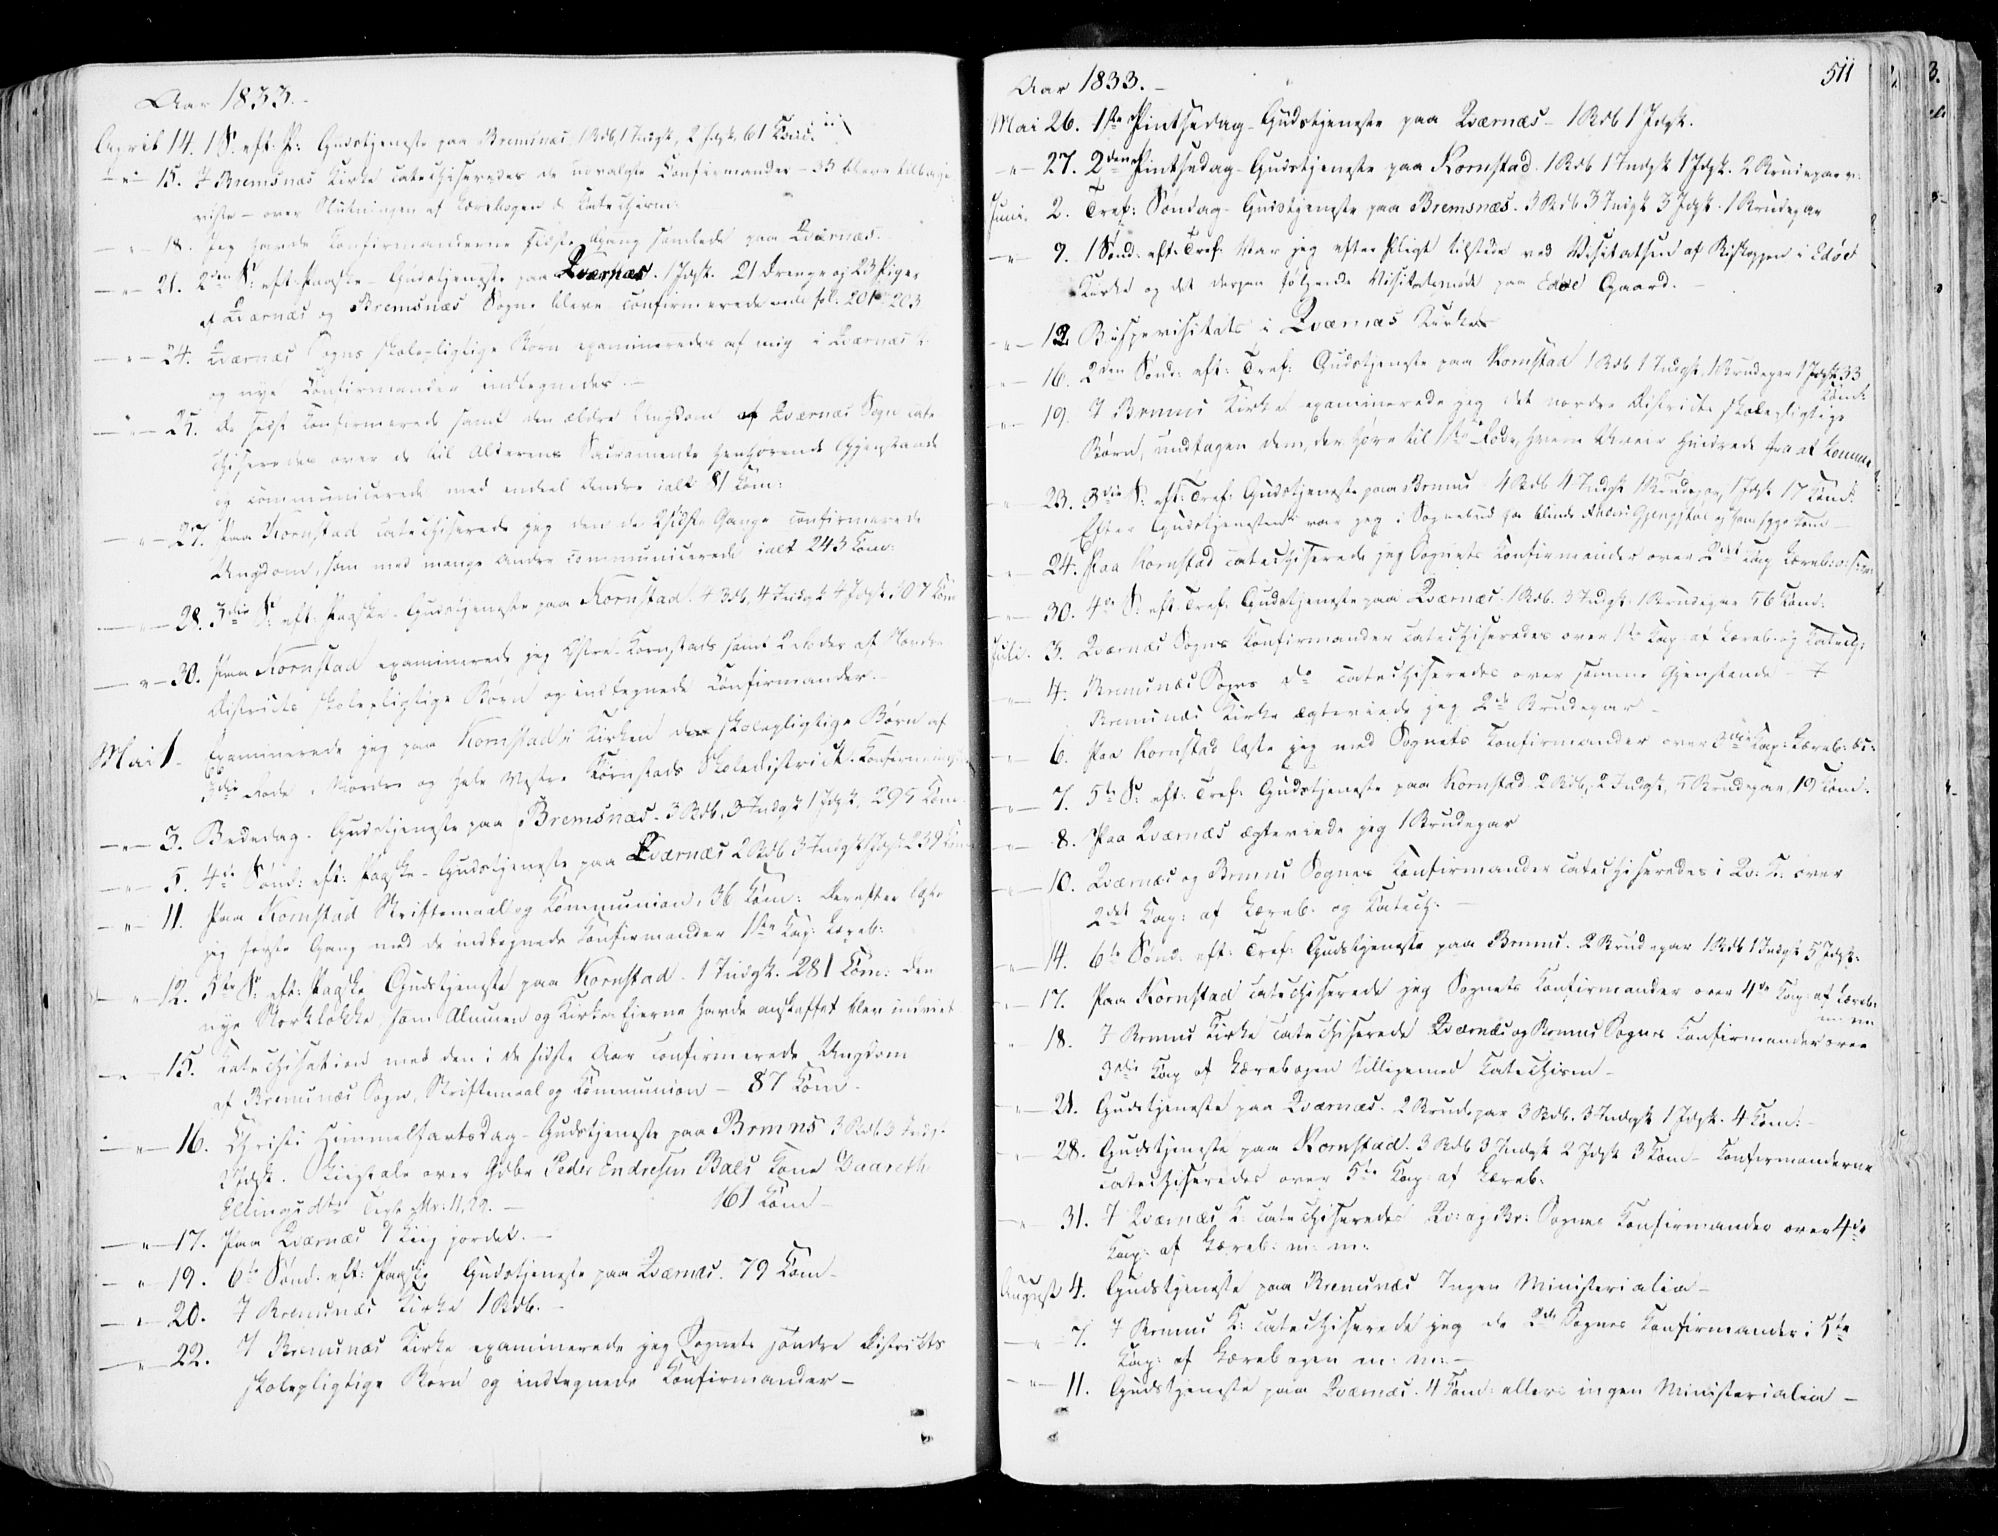 Aar 1833.
April 14. 1 S. eft. P: Gudstjeneste paa Bremsnæs, 1 Rdb 1 Indgk, 2 Jdgk. 61 Com.
15. I Bremsnæs Kirke catechiseredes de udvalgte Confirmander - 33 bleve tilbage
viste - over Slutningen af Lærebogen & Catechism:
18. Jeg havde Confirmanderne sidste Gang samlede paa Qværnæs.
21. 2den S: eft. Paaske - Gudstjeneste paa Qværnæs. 1 Jdgk. 21 Drenge og 23 Piger
af Qværnæs og Bremsnæs Sogne bleve confirmerede vide fol. 201 203
24. Qværnæs Sogns skolepligtige Børn examineredes af mig i Qværnæs K.
og nye Confirmander indtegnedes. -
25. De sidst confirmerede samt den ældre Ungdom af Qværnæs Sogn cate
chiseredes over de til Alterens Sacramente henhørende Gjenstande
og communicerede med endeel andre ialt 81 Com:
27. Paa Kornstad catechiserede jeg den de 2 sidste Gange confirmerede
Ungdom, som med mange andre communicerede ialt 243 Com.
28. 3die S: eft. Paaske. Gudstjeneste paa Kornstad. 4 Rdb, 4 Indgk 4 Jdgk 107 Com
30. Paa Kornstad examinerede jeg Østre Kornstads samt 2 Roder af Nordre
Districts skolepligtige Børn og indtegnede Confirmander.
Mai 1. Examinerede jeg paa Kornstad i Kirken de skolepligtige Børn af
3die Rode Nordre og hele Vestre Kornstads Skoledistrict.
3. Bededag. Gudstjeneste paa Bremsnæs. 3 Rdb, 3 Indgk 1 Jdgk, 295 Com.
5. 4de Sønd: eft: Paaske - Gudstjeneste paa Qværnæs 2 Rdb 3 Indgk 1 Jdgk 239 Com
11. Paa Kornstad Skriftemaal og Communion. 36 Com: Derefter læste
jeg første Gang med de indtegnede Confirmander 1ste Cap: Læreb:
12. 5te S: eft: Paaske Gudstjeneste paa Kornstad. 1 Indgk. 281 Com: Den
nye Storklokke som Almuen og Kirke Eierne havde anskaffet blev indviet
15. Catechisation med den i de sidste Aar confirmerede Ungdom
af Bremsnæs Sogn, Skriftemaal og Communion - 87 Com.
16. Christi Himmelfartsdag - Gudstjeneste paa Brmns 3 Rdb 3 Indgk
Jdgk. Liigtale over Peder Endresen Bals Kone
Ellingsdtr Text Mr: 11, 29. - 161 Com -
17. Paa Qværnæs 1 Liig jordet. -
19. 6te Sønd. eft: Paaske Gudstjeneste paa Qværnæs. 79 Com -
20. I Bremsnæs Kirke 1 Rdb. -
22. I Bremsnæs Kirke examinerede jeg Sognets søndre Districts
skolepligtige Børn og indtegnede Confirmander -
Aar 1833. - 511
Mai 26. 1ste Pintsedag - Gudstjeneste paa Qværnæs - 1 Rdb 1 Jdgk.
27. 2den Pintsedag - Gudstjeneste paa Kornstad. 1 Rdb 1 Indgk 1 Jdgk. 2 Brudepar
Juni. 2. Tref: Søndag - Gudstjeneste paa Bremsnæs. 3 Rdb 3 Indgk 3 Jdgk. 1 Brudepar
9. 1 Sønd: eft: Tref: Var jeg efter Pligt tilstede ved Visitatsen af Biskoppen i Edøe
Kirke og det derpaa følgende Visitatsmøde paa Edøe Gaard. -
12. Bispevisitats i Qværnæs Kirke
16. 2den Sønd: eft: Tref: Gudstjeneste paa Kornstad 1 Rdb 1 Indgk, 1 Brudepar 1 Jdgk 33
Com:
19. I Brmns Kirke examinerede jeg det nordre Districts skolepligtige
Børn, undtagen dem, der høre til 1ste Rode, hvem Uveir hindrede fra at komme
23. 3die S: eft: Tref: Gudstjeneste paa Brmns. 4 Rdb 4 Indgk 1 Brudepar 1 Jdgk 17 Com:
Efter Gudstjenesten var jeg i Sognebud
24. Paa Kornstad catechiserede jeg Sognets Confirmander over 2det Cap Læreb:
30. 4de S: eft: Tref: Gudstjeneste paa Qværnæs. 1 Rdb. 3 Indgk. 1 Brudepar 56 Com:
Juli. 3. Qværnæs Sogns Confirmander catechiseredes over 1ste Cap: af Læreb. og Catech:
4. Bremsnæs Sogns do catechiseredes over samme Gjenstande - I
Bremsnæs Kirke ægteviede jeg 2de Brudepar -
6. Paa Kornstad læste jeg med Sognets Confirmander over 3die Cap: Læreb:
7. 5te S: eft: Tref: Gudstjeneste paa Kornstad 2 Rdb, 2 Indgk, 5 Brudepar, 19 Com.
8. Paa Qværnæs ægteviede jeg 1 Brudepar
10. Qværnæs og Brmns Sognes Confirmander catechiseredes i Qv: K. over
2det Cap: af Læreb. og Catech: -
14. 6te Sønd: eft: Tref: Gudstjeneste paa Brmns. 2 Brudepar 1 Rdb 1 Indgk 5 Jdgk:
17. Paa Kornstad catechiserede jeg Sognets Confirmander over 4de Cap: af Læreb.
m: m
18. I Brmns Kirke catechiserede Qværnæs og Brmns Sognes Confirmander over
3die Cap af Lærebogen tilligemed Catechism -
21. Gudstjeneste paa Qværnæs. 2 Brudepar 3 Rdb. 3 Indgk 1 Jdgk. 4 Com: -
28. Gudstjeneste paa Kornstad. 3 Rdb 3 Indgk 2 Jdgk 3 Com - Confirmanderne
catechiseredes over 5te Cap: af Læreb:
31. I Qværnæs K: catechiseredes Qv: og Br: Sognes Confirmander over 4de
Cap: af Læreb: m: m:
August 4. Gudstjeneste paa Bremsnæs Ingen Ministerialia -
7. I Brmns K: catechiserede jeg de 2de Sognes Confirmander i 5te
Cap: af Lærebogen m: m: -
11. Gudstjeneste paa Qværnæs. 4 Com: ellers ingen Ministerialia -